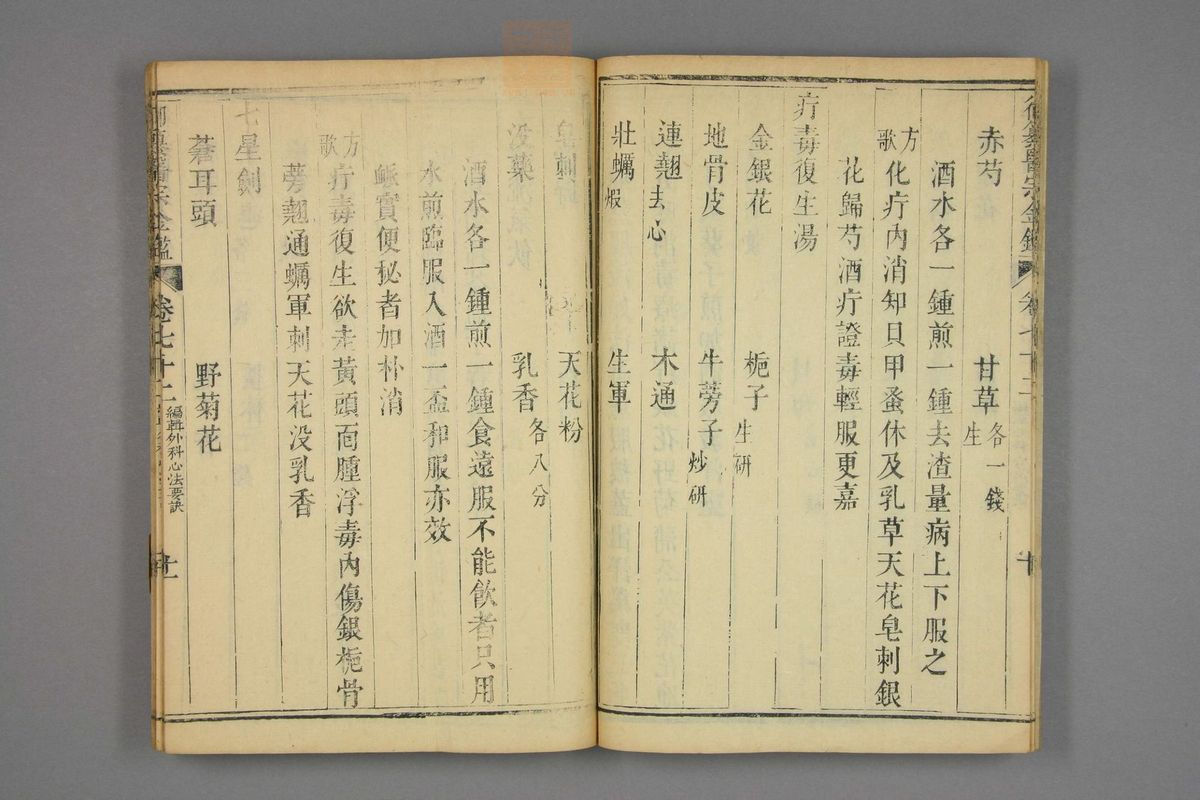 赤芍　甘草生　各一錢
酒水各一鍾煎一鍾去渣量病上下服之
方歌　化疔內消知貝甲蚤休及乳草天花皂刺銀
花歸芍酒疔證毒輕服更嘉
疔毒復生湯
金銀花　梔子生研
地骨皮　牛蒡子炒研
連翹去心　木通
牡蠣煅　生軍
皂刺　天花粉
没藥　乳香各八分
酒水各一鍾煎一鍾食遠服不能飲者只用
水煎臨服入酒一盃和服亦效
脈實便秘者加朴消
方歌　疔毒復生欲走黃頭面腫浮毒內傷銀梔骨
蒡翹通蠣軍刺天花没乳香
七星劍
蒼耳頭　野菊花
御纂醫宗金鑑　卷七十二　編輯外科心法要訣　十一